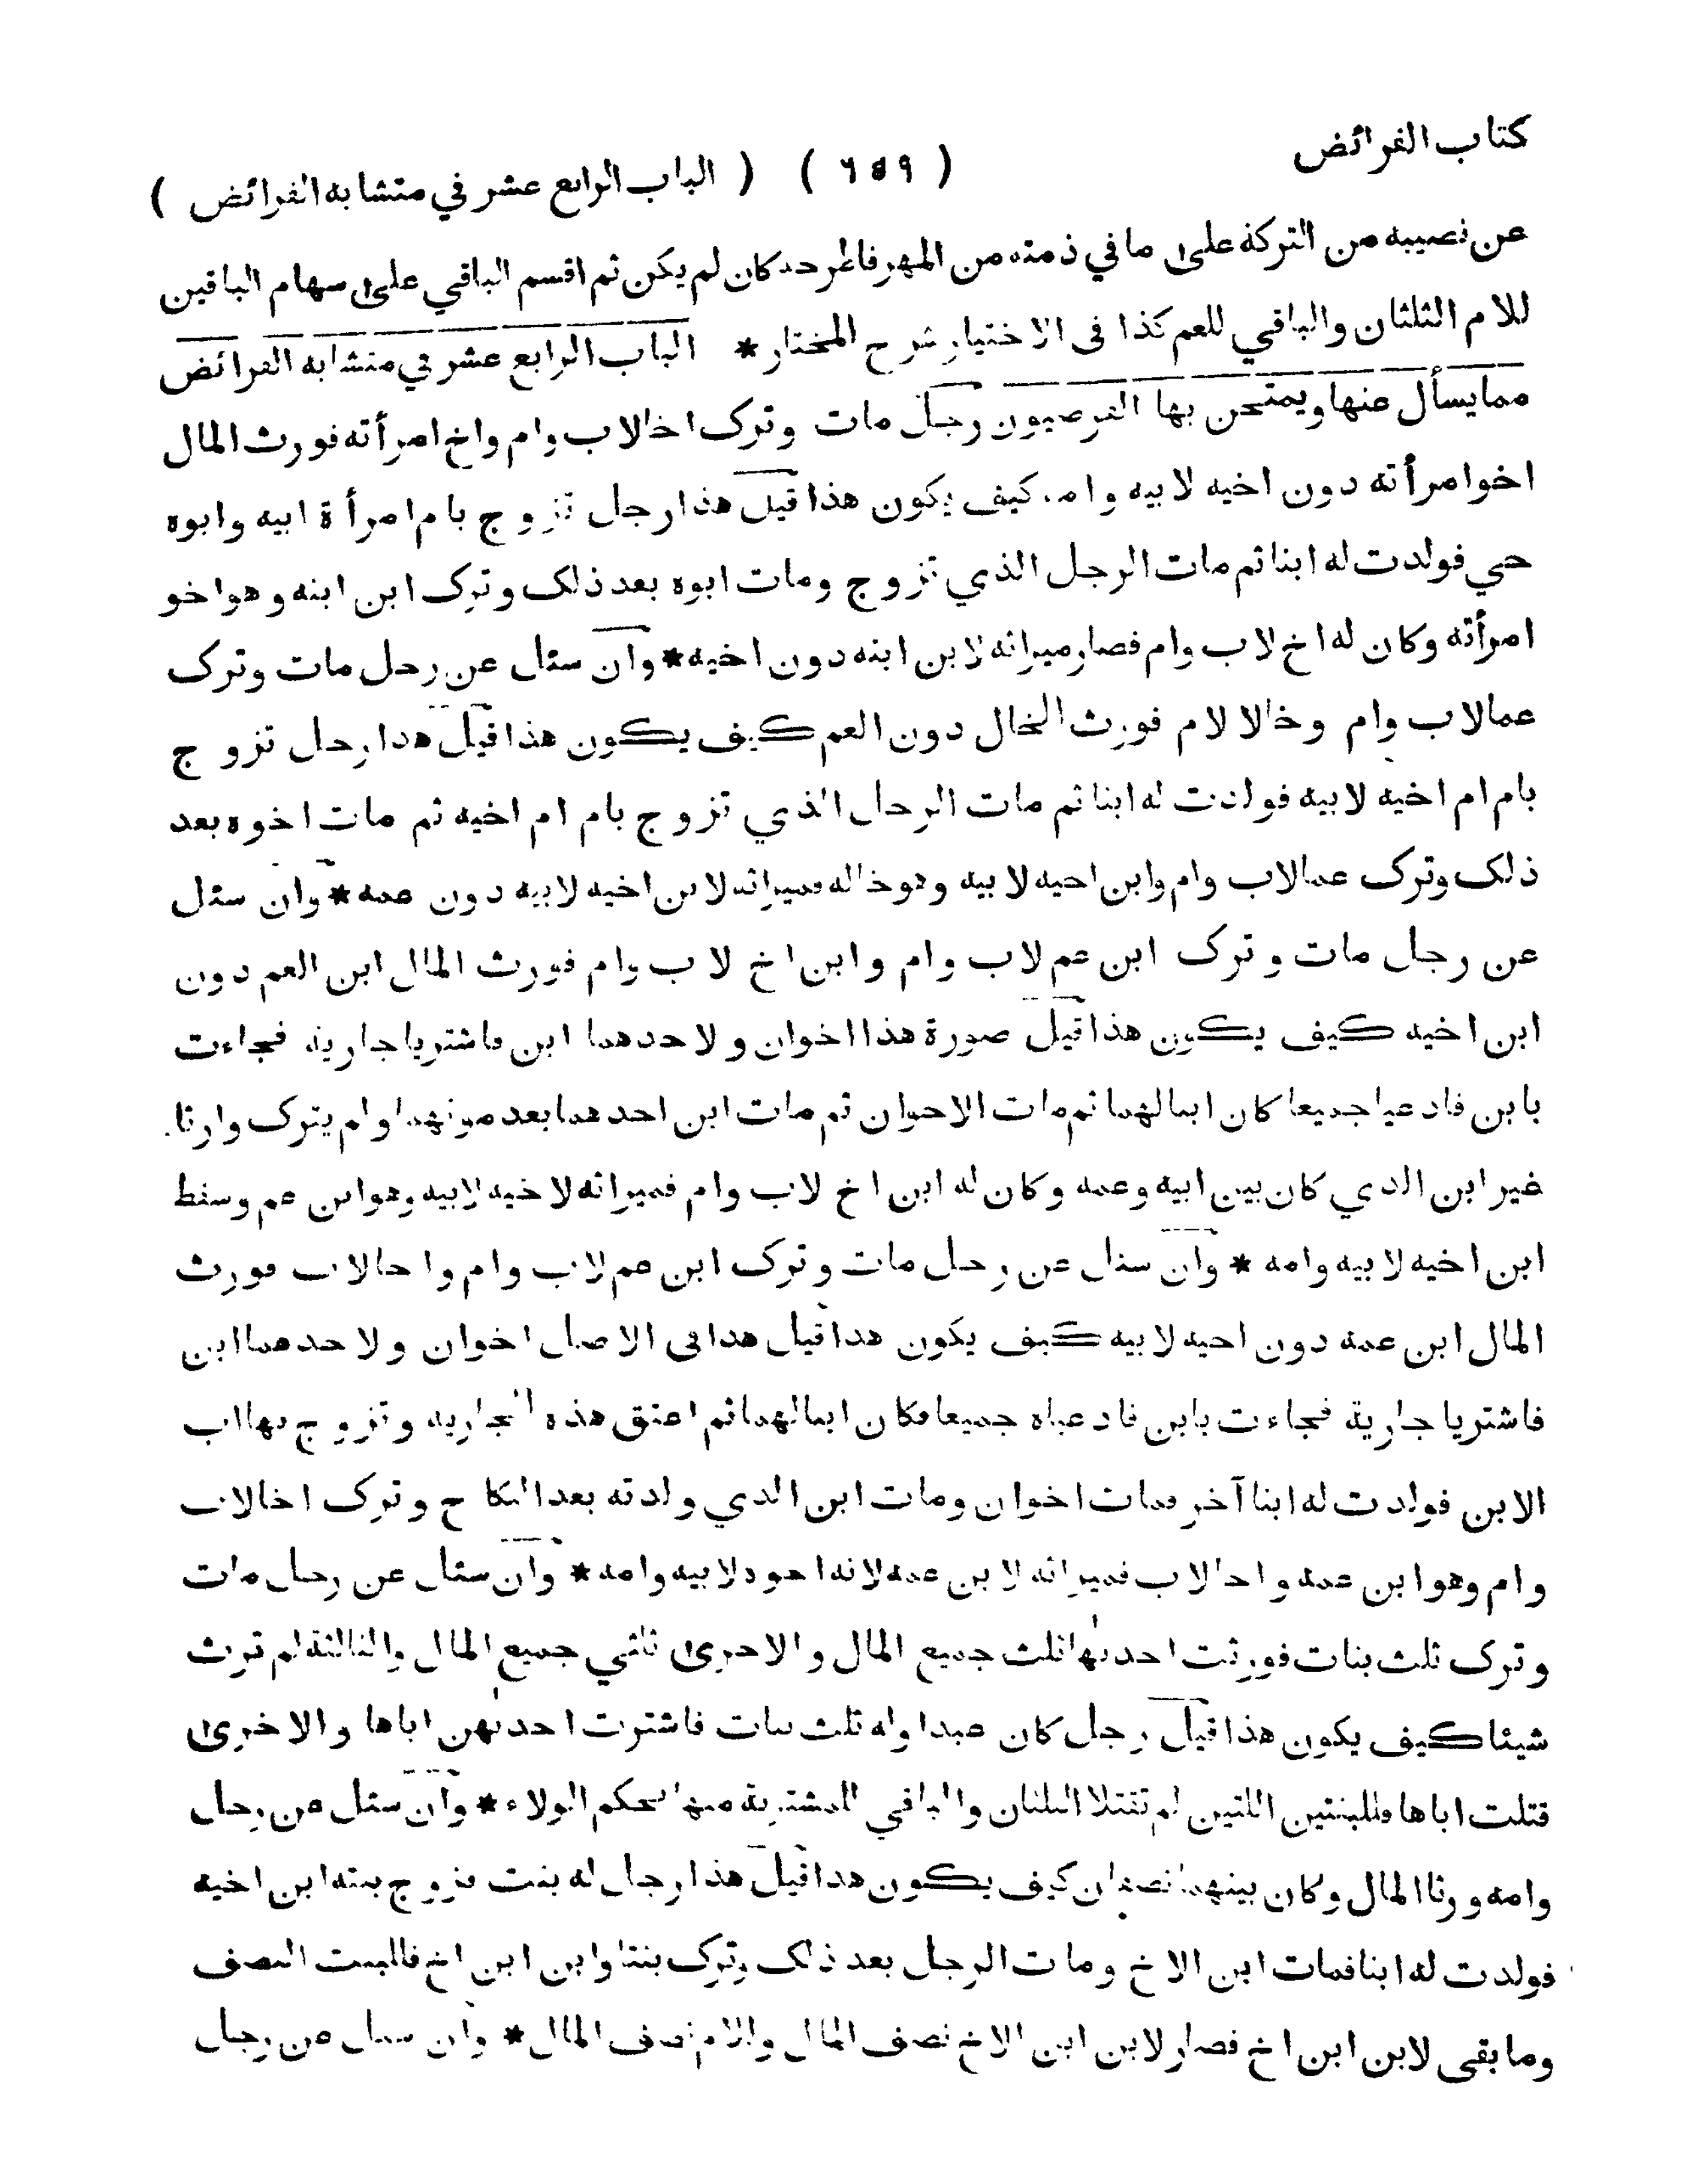 كتاب الفرائض
( ٦٥٩ ) ( الباب الرابع عشر في متشابه الفرائض )
عن نصيبه من التركة على ما في ذمته من المهر فاطرحه كان لم يكن ثم اقسم الباقي على سهام الباقين
للام الثلثان والباقي للعم كذا فى الاختيار شرح المختار * الباب الرابع عشر في متشابه الفرائض
مما يسأل عنها ويمتحن بها الفرضيون رجل مات وترك اخا لاب وام واخ امرأته فورث المال
اخو امرأته دون اخيه لابيه وامه كيف يكون هذا قيل هذا رجل تزوج بام امرأة ابيه وابوه
حي فولدت له ابنا ثم مات الرجل الذي تزوج ومات ابوه بعد ذلك وترك ابن ابنه وهو اخو
امرأته وكان له اخ لاب وام فصار ميراثه لابن ابنه دون اخيه * وان سئل عن رجل مات وترك
عما لاب وام وخالا لام فورث الخال دون العم كيف يكون هذا قيل هذا رجل تزوج
بام ام اخيه لابيه فولدت له ابنا ثم مات الرجل الذي تزوج بام ام اخيه ثم مات اخوه بعد
ذلك وترك عما لاب وام وابن اخيه لابيه وهو خاله فميراثه لابن اخيه لابيه دون عمه * وان سئل
عن رجل مات وترك ابن عم لاب وام وابن اخ لاب وام فورث المال ابن العم دون
ابن اخيه كيف يكون هذا قيل صورة هذا اخوان ولاحدهما ابن فاشتريا جارية فجاءت
بابن فادعيا جميعا كان ابنا لهما ثم مات الاخوان ثم مات ابن احدهما بعد موتهما ولم يترك وارثا
غير ابن الذي كان بين ابيه وعمه وكان له ابن اخ لاب وام فميراثه لاخيه لابيه وهو ابن عم وسقط
ابن اخيه لابيه وامه * وان سئل عن رجل مات وترك ابن عم لاب وام واخا لاب فورث
المال ابن عمه دون اخيه لابيه كيف يكون هذا قيل هذا في الاصل اخوان ولاحدهما ابن
فاشتريا جارية فجاءت بابن فادعياه جميعا فكان ابنا لهما ثم اعتق هذه الجارية وتزوج بها اب
الابن فولدت له ابنا آخر فمات اخوان ومات ابن الذي ولدته بعد النكاح وترك اخا لاب
وام وهو ابن عمه واخا لاب فميراثه لابن عمه لانه اخوه لابيه وامه * وان سئل عن رجل مات
وترك ثلث بنات فورثت احدىها ثلث جميع المال والاخرى ثلثي جميع المال والثالثة لم ترث
شيئا كيف يكون هذا قيل رجل كان عبدا وله ثلث بنات فاشترت احدىهن اباها والاخرى
قتلت اباها فللبنتين اللتين لم تقتلا الثلثان والباقي للمشترية منها بحكم الولاء * وان سئل عن رجل
وامه ورثا المال وكان بينهما نصفان كيف يكون هذا قيل هذا رجل له بنت فزوج بنته ابن اخيه
فولدت له ابنا فمات ابن الاخ ومات الرجل بعد ذلك وترك بنتا وابن ابن اخ فللبنت النصف
وما بقى لابن ابن اخ فصار لابن ابن الاخ نصف المال وللام نصف المال * وان سئل عن رجل